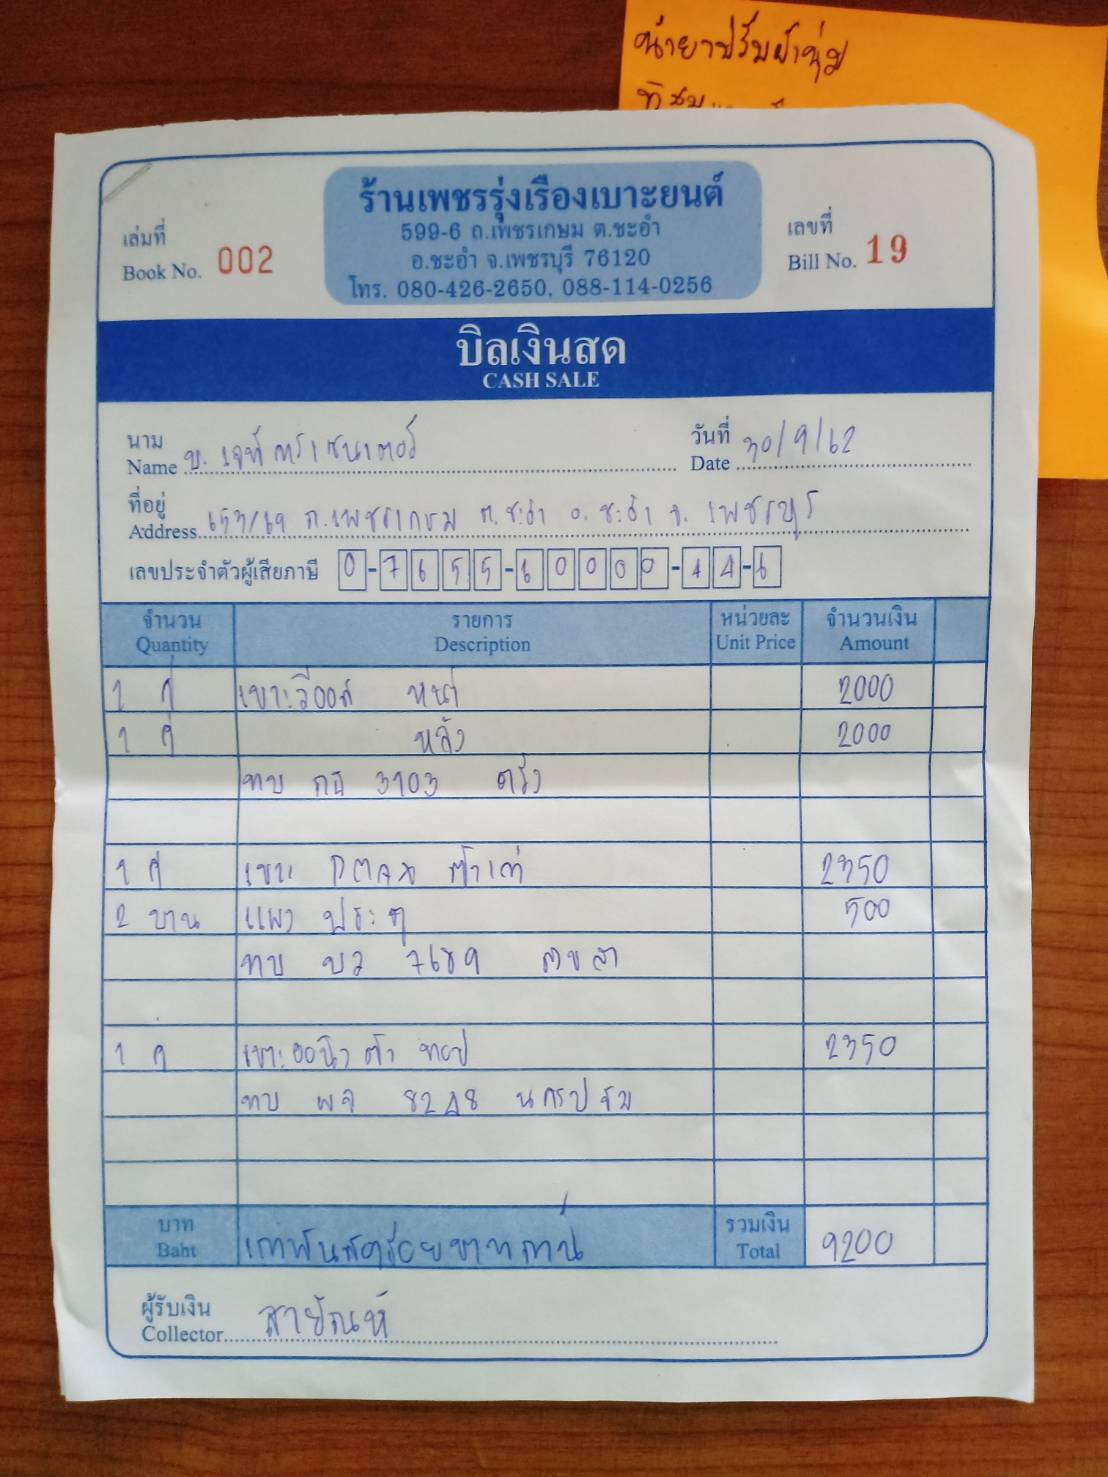 น้ำยาปรับผ้านุ่ม
ร้านเพชรรุ่งเรืองเบาะยนต์
599-6 ถ.เพชรเกษม ต.ชะอำ
อ.ชะอำ จ.เพชรบุรี 76120
โทร. 080-426-2650, 088-114-0256
เล่มที่
Book No. 002
เลขที่
Bill No. 19
บิลเงินสด
CASH SALE
นาม
Name บ.
วันที่
Date 30/9/62
ที่อยู่
Address 653/69 ถ.เพชรเกษม ต.ชะอำ อ.ชะอำ จ.เพชรบุรี
เลขประจำตัวผู้เสียภาษี 0-7655-60000-44-6
จำนวน รายการ หน่วยละ จำนวนเงิน
Quantity Description Unit Price Amount
1 คู่ เบาะวีออส หน้า 2000
1 คู่ หลัง 2000
3103 ตรัง
1 คู่ 2350
2 บาน แผงประตู 500
ทบ บว 7689
1 คู่ 2350
ทบ ผจ 8248 นครปฐม
บาท
Baht เก้าพันสองร้อยบาทถ้วน
รวมเงิน
Total 9200
ผู้รับเงิน
Collector สายัณห์